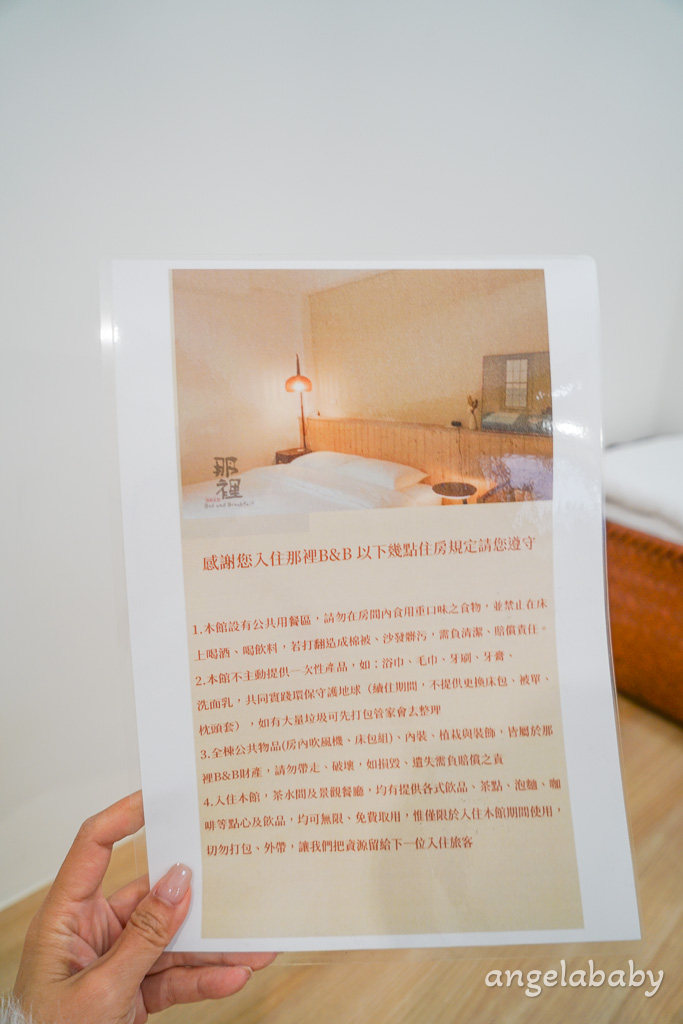 那裡
Bed and Breakfast
感謝您入住那裡B&B 以下幾點住房規定請您遵守
1.本館設有公共用餐區，請勿在房間內食用重口味之食物，並禁止在床
上喝酒、喝飲料，若打翻造成棉被、沙發髒污，需負清潔、賠償責任。
2.本館不主動提供一次性產品，如：浴巾、毛巾、牙刷、牙膏、
洗面乳，共同實踐環保守護地球（續住期間，不提供更換床包、被單、
枕頭套），如有大量垃圾可先打包管家會去整理
3.全棟公共物品(房內吹風機、床包組)、內裝、植栽與裝飾，皆屬於那
裡B&B財產，請勿帶走、破壞，如損毀、遺失需負賠償之責
4.入住本館，茶水間及景觀餐廳，均有提供各式飲品、茶點、泡麵、咖
啡等點心及飲品，均可無限、免費取用，惟僅限於入住本館期間使用，
切勿打包、外帶，讓我們把資源留給下一位入住旅客
angelababy